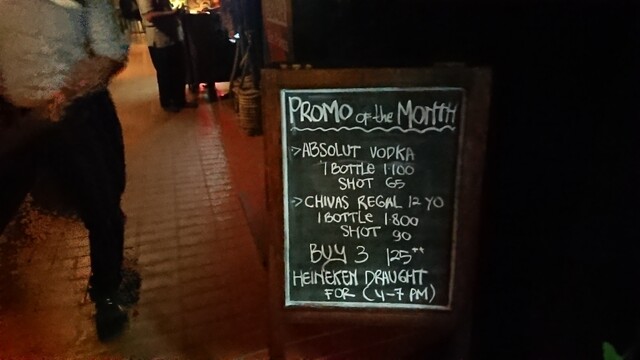 PROMO OF the MONTH
>ABSOLUT VODKA
1 BOTTLE 1·100
SHOT 65
>CHIVAS REGAL 12 YO
1 BOTTLE 1·800
SHOT 90
BUY 3 125**
HEINEKEN DRAUGHT
FOR (4-7 PM)